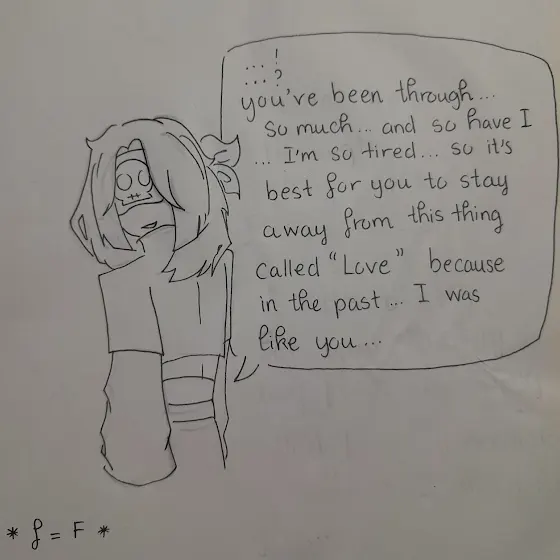 ... !
... ?
you've been through...
so much... and so have I
... I'm so tired... so it's
best for you to stay
away from this thing
called "Love" because
in the past... I was
like you...
* ƒ = F *